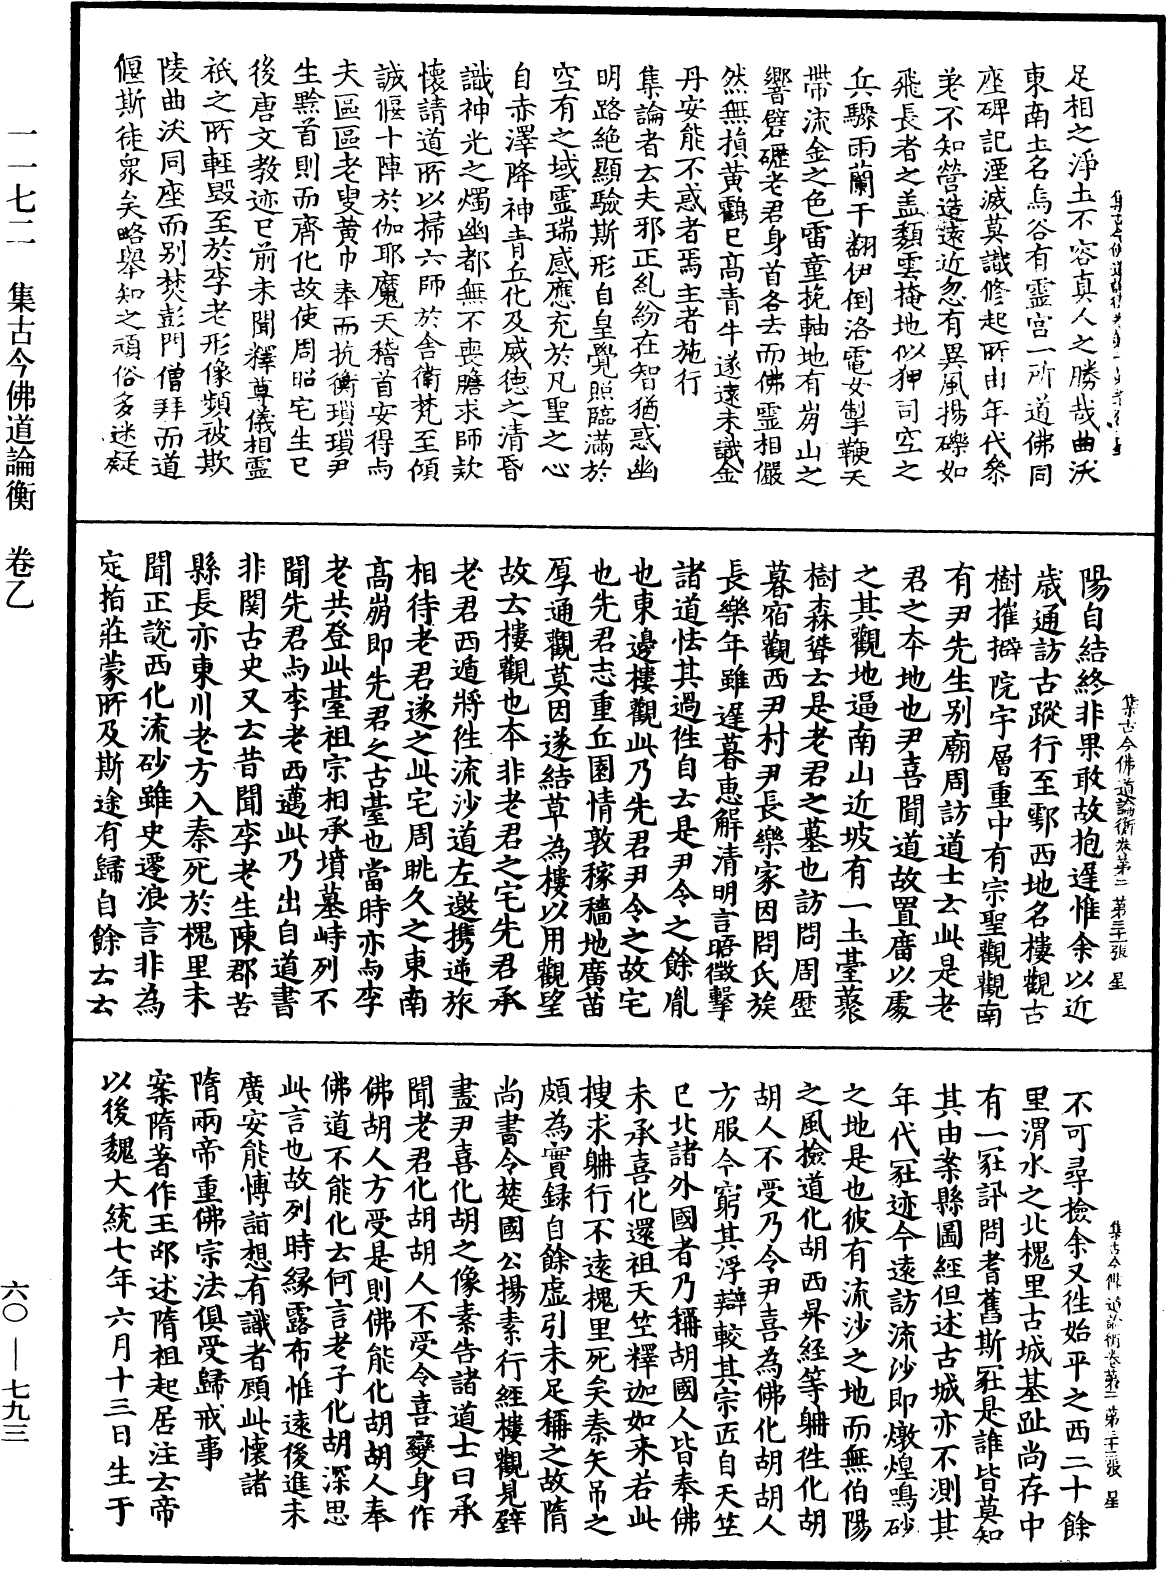 一一七二　集古今佛道論衡　卷乙
六〇—七九三
足相之淨土不容真人之勝哉曲沃
東南土名烏谷有靈宮一所道佛同
座碑記湮滅莫識修起所由年代叅
差不知營造遠近忽有異風揚礫如
飛長者之盖黷雲掩地似狎司空之
兵驟雨蘭干翻伊倒洛電女掣鞭天
帶流金之色雷童挽軸地有崩山之
響礕礰老君身首各去而佛靈相儼
然無損黃鸖已高青牛遂遠未識金
丹安能不惑者焉主者施行
集論者云夫邪正糺紛在智猶惑幽
明路絕顯驗斯形自皇覺照臨滿於
空有之域靈瑞感應充於凡聖之心
自赤澤降神青丘化及威德之清昏
識神光之燭幽都無不喪膽求師欵
懷請道所以掃六師於舍衛梵至傾
誠偃十陣於伽耶魔天稽首安得与
夫區區老叟黃巾奉而抗衡瑣瑣尹
生黔首則而齊化故使周昭宅生已
後唐文教迹已前未聞釋尊儀相靈
祇之所輕毀至於李老形像頻被欺
陵曲沃同座而别焚彭門僧拜而道
偃斯徒衆矣略舉知之頑俗多迷疑
集古今佛道論衡卷第二　第三十張　星
陽自結終非果敢故抱遲惟余以近
歳通訪古蹤行至鄠西地名樓觀古
樹摧擗院宇層重中有宗聖觀觀南
有尹先生别廟周訪道士云此是老
君之夲地也尹喜聞道故置廣以處
之其觀地逼南山近坡有一土臺藂
樹森聳云是老君之墓也訪問周歷
暮宿觀西尹村尹長樂家因問氏族
長樂年雖遲暮恵解清明言晤徵擊
諸道怯其過徃自云是尹令之餘胤
也東邊樓觀此乃先君尹令之故宅
也先君志重丘園情敦稼穡地廣苗
厚通觀莫因遂結草為樓以用觀望
故云樓觀也本非老君之宅先君承
老君西遁將徃流沙道左邀携逆旅
相待老君遂之此宅周眺久之東南
高崩即先君之古臺也當時亦与李
老共登此臺祖宗相承墳墓峙列不
聞先君与李老西邁此乃出自道書
非関古史又云昔聞李老生陳郡苦
縣長亦東川老方入秦死於槐里未
聞正說西化流砂雖史遷浪言非為
定指莊蒙所及斯途有歸自餘云云
不可尋檢余又徃始平之西二十餘
里渭水之北槐里古城基趾尚存中
有一冢訊問耆舊斯冢是誰皆莫知
其由案縣圖經但述古城亦不測其
年代冢迹今遠訪流沙即燉煌鳴砂
之地是也彼有流沙之地而無伯陽
之風撿道化胡西昇経等聃徃化胡
胡人不受乃令尹喜為佛化胡胡人
方服今窮其浮辯較其宗匠自天竺
已北諸外國者乃稱胡國人皆奉佛
未承喜化還祖天竺釋迦如来若此
搜求聃行不遠槐里死矣秦矢吊之
頗為實録自餘虛引未足稱之故隋
尚書令楚國公揚素行經樓觀見壁
畫尹喜化胡之像素告諸道士曰承
聞老君化胡胡人不受令喜變身作
佛胡人方受是則佛能化胡胡人奉
佛道不能化云何言老子化胡深思
此言也故列時緣露布惟遠後進未
廣安能愽詣想有識者顾此懷諸
隋兩帝重佛宗法俱受歸戒事
案隋著作王邵述隋祖起居注云帝
以後魏大統七年六月十三日生于